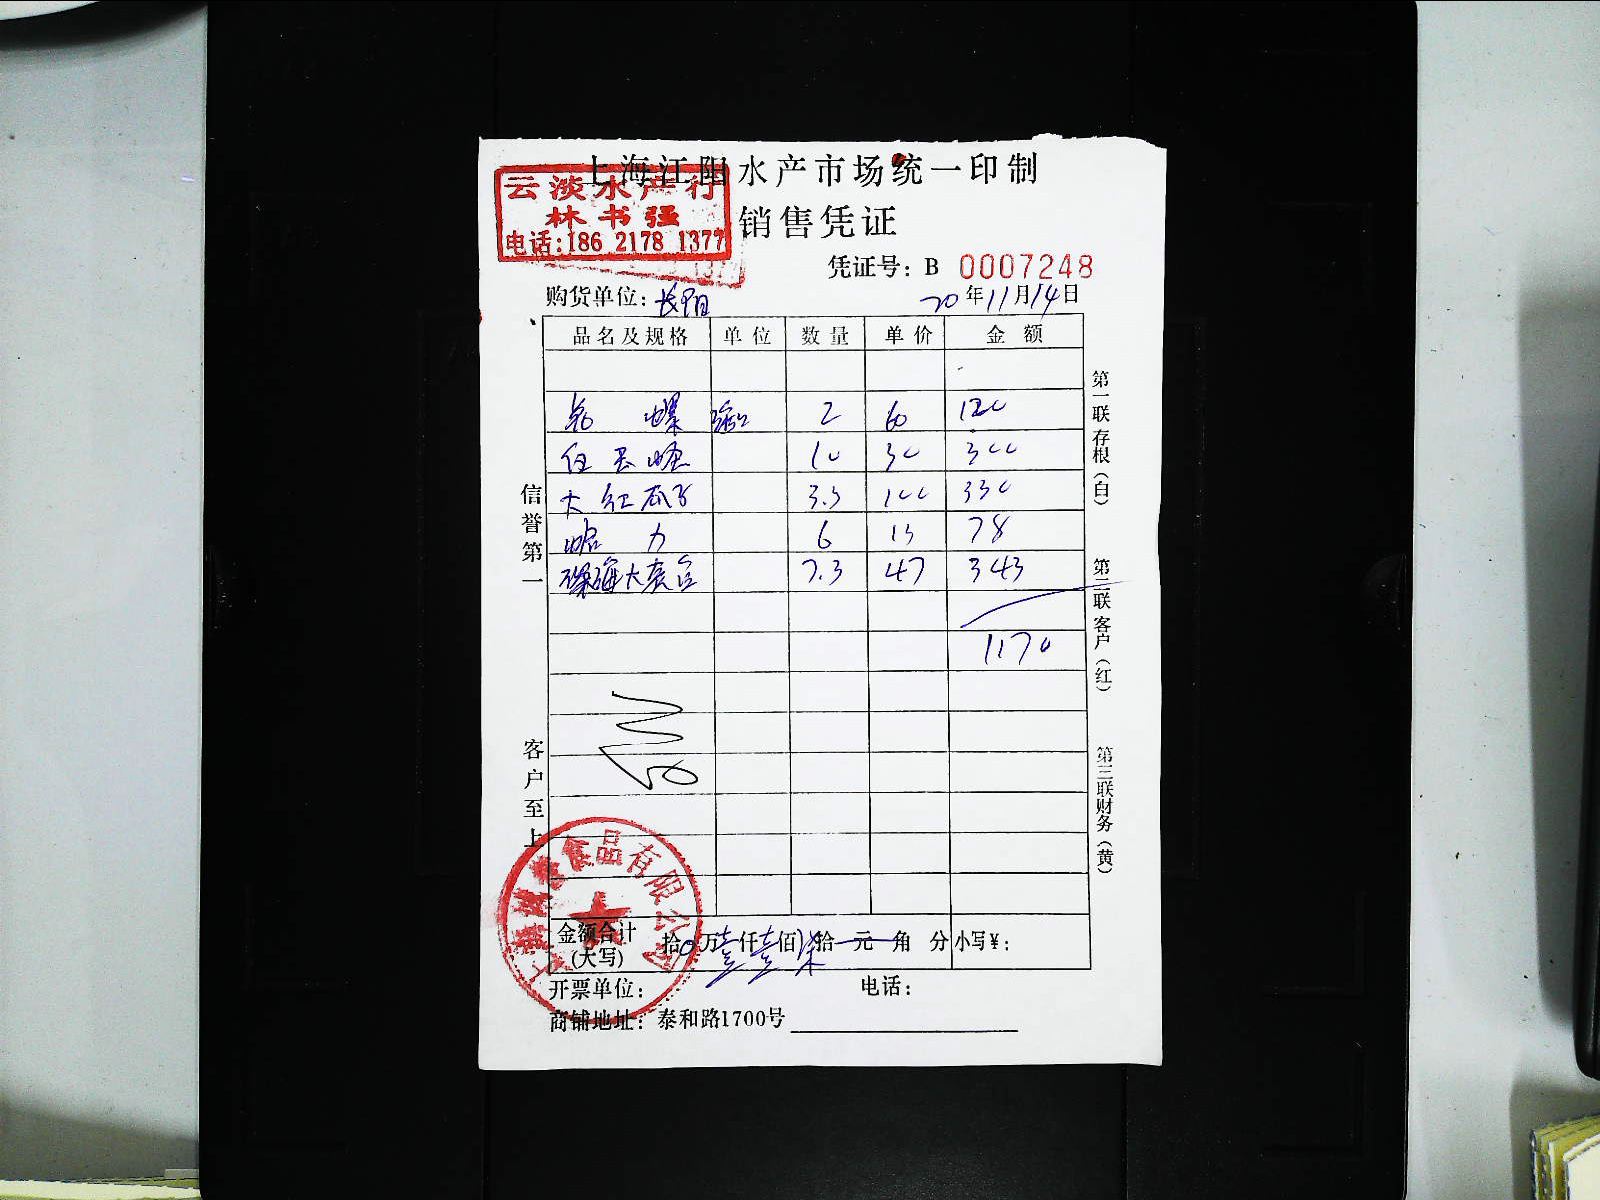 上海江阳水产市场统一印制
云淡水产行
林书强
电话:186 2178 1377
销售凭证
凭证号: B 0007248
购货单位: 长阳
20年11月14日
品名及规格 单位 数量 单价 金额
螺 2 60 120
10 30 300
大红瓜子 3.3 100 330
蛤力 6 13 78
深海大 7.3 47 343
1170
信誉第一
客户至上
第一联存根(白)
第二联客户(红)
第三联财务(黄)
食品有限公司
金额合计(大写) 拾0万壹仟壹佰柒拾元角分 小写¥:
开票单位: 电话:
商铺地址: 泰和路1700号